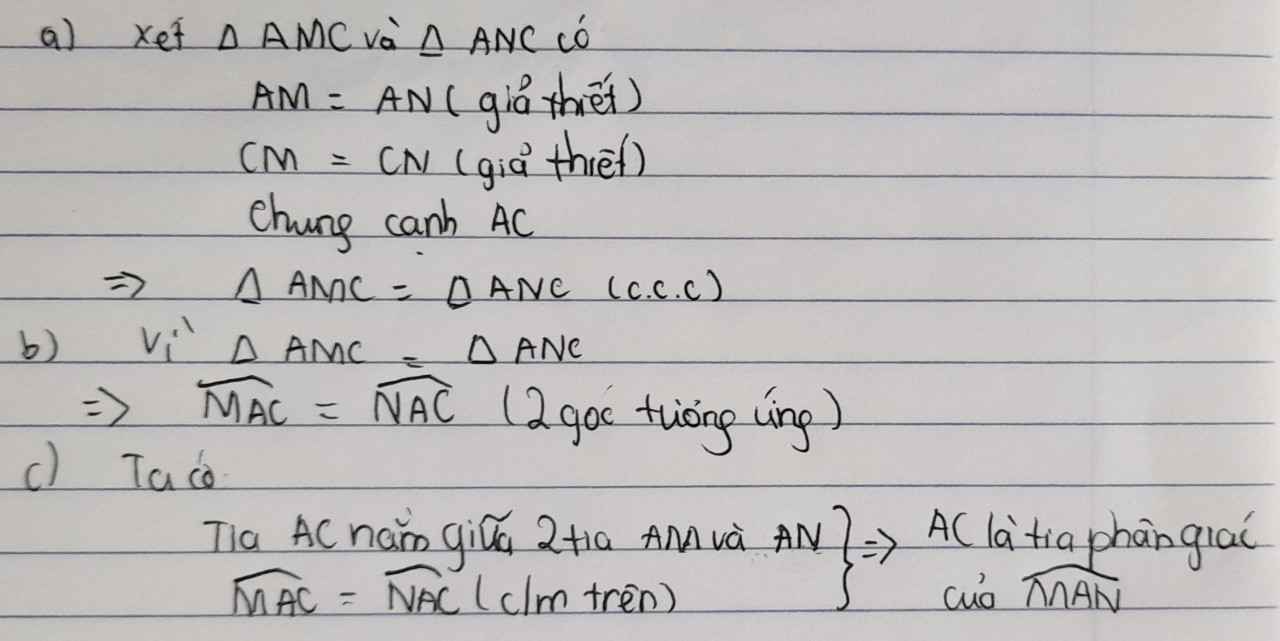 a) Xét Δ AMC và Δ ANC có
AM = AN ( giả thiết )
CM = CN ( giả thiết )
Chung cạnh AC
=> Δ AMC = Δ ANC (c.c.c)
b) Vì Δ AMC = Δ ANC
=> \widehat{MAC} = \widehat{NAC} (2 góc tương ứng )
c) Ta có
Tia AC nằm giữa 2 tia AM và AN } => AC là tia phân giác
\widehat{MAC} = \widehat{NAC} ( c/m trên) của \widehat{MAN}